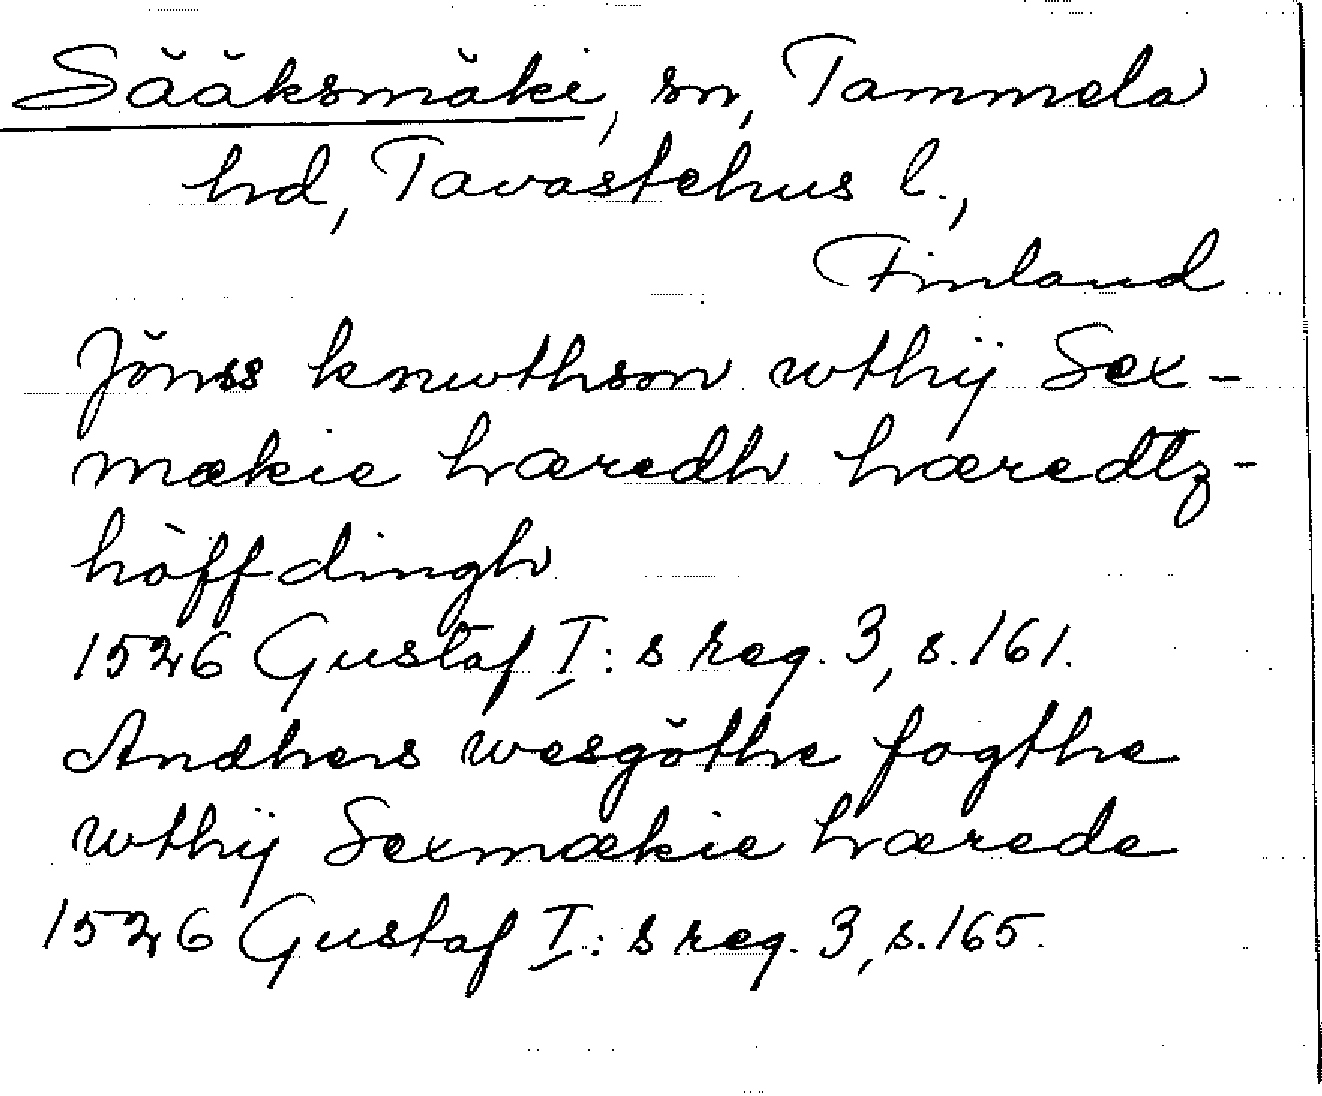 Sääksmäki, sn, Tammela
hd, Tavastehus l.,
Finland
Jönss knwthson wthij Sex-
mækie hæredh hæredtz-
höffdingh
1526 Gustaf I: s reg. 3, s. 161.
Andhers wesgöthe fogthe
wthij Sexmækie hærede
1526 Gustaf I: s reg. 3, s. 165.